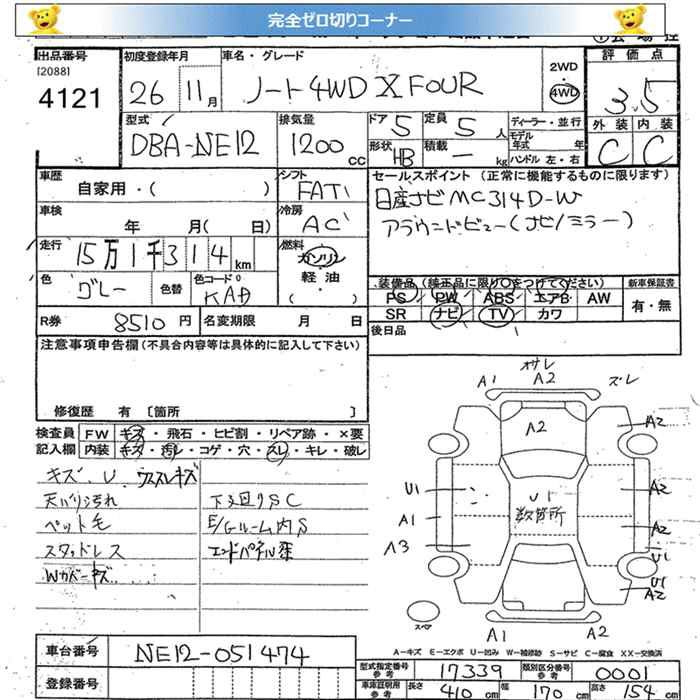 完全ゼロ切りコーナー
出品番号
[2088]
4121
初度登録年月
26 11月
車名・グレード
ノート4WD X FOUR
2WD
4WD
評価点
3.5
外装 内装
C C
型式
DBA-NE12
排気量
1200 CC
ドア 5
形状 HB
定員 5 人
積載 — kg
ディーラー・並行
モデル年式 年
ハンドル 左・右
車歴
自家用・( )
シフト
FAT
冷房
AC
セールスポイント (正常に機能するものに限ります)
日産ナビMC314D-W
アラウンドビュー(ナビ/ミラー)
車検
年 月( 日)
走行
15万1千314km
燃料
ガソリン
軽油
( )
色
グレー
色替
色コードNo
KAD
装備品 (純正品に限り○をつけてください)
PS PW ABS エアB AW
SR ナビ TV カワ
新車保証書
有・無
R券 8510円
名変期限 月 日
後日品
注意事項申告欄(不具合内容等は具体的に記入して下さい)
修復歴 有 [箇所 ]
検査員記入欄
FW キズ・飛石・ヒビ割・リペア跡・×要
内装 キズ・汚れ・コゲ・穴・スレ・キレ・破レ
キズ、U、ウススレキズ
天バリ汚れ
ペット毛
スタッドレス
Wカバーキズ
下廻りSC
E/Gルーム内S
エンドパネル歪
オサレ
A1 A2 ズレ
A2 A2
U1 U1 A2
数箇所
A1 A2
A3 U1
U1
A2
A1 A2
スペア
A-キズ E-エクボ U-凹み W-補修跡 S-サビ C-腐食 XX-交換済
車台番号 NE12-051474
登録番号
型式指定番号参考 17339
類別区分番号参考 0001
車庫証明用参考 長さ 410 cm 幅 170 cm 高さ 154 cm